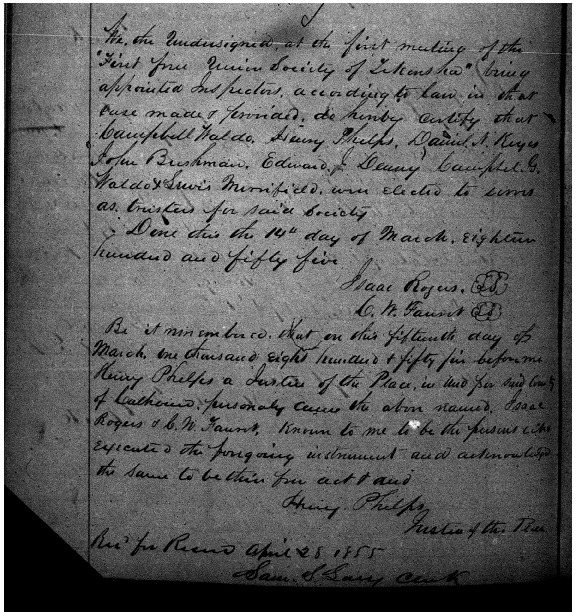 We, the Undersigned at the first meeting of the
"First free Union Society of Tekonsha" being
appointed Inspectors, according to law in that
case made & provided, do hereby certify that
Campbell Waldo, Henry Phelps, David N. Keyes
John Bushman, Edward J. Denny Campbel G.
Waldo & Lewis Merrifield, were elected to serve
as trusters for said Society
Done this the 14th day of March, eighteen
hundred and fifty five
Isaac Rogers. LS
C. W. Faurot LS
Be it remembered, that on this fifteenth day of
March, one thousand eight hundred & fifty five before me
Henry Phelps a Justice of the Peace, in and for said County
of Calhoun, personaly came the above named, Isaac
Rogers & C. W. Faurot, Known to me to be the persons who
executed the foregoing instrument and acknowledged
the same to be their free act & deed
Henry Phelps
Justice of the Peace
Rec' for Record April 28 1855
Sam. S Lacey Clerk